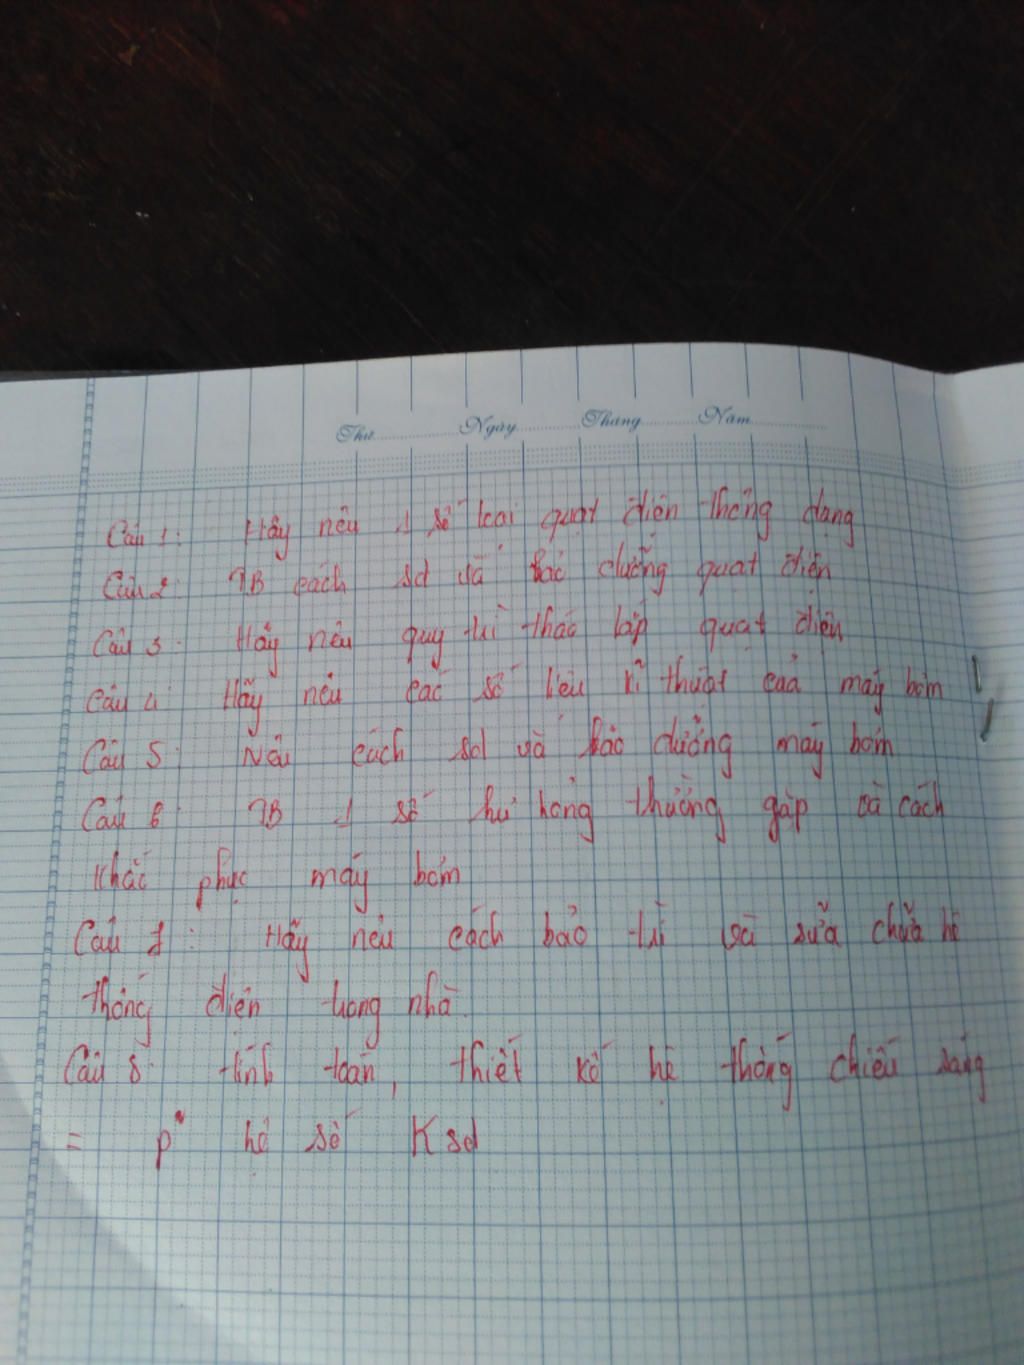 Thứ Ngày Tháng Năm
Câu 1: Hãy nêu 1 số loại quạt điện thông dụng
Câu 2: TB cách sd và bảo dưỡng quạt điện
Câu 3: Hãy nêu quy trì tháo lắp quạt điện
Câu 4: Hãy nêu các số liệu kĩ thuật của máy bơm
Câu 5: Nêu cách sd và bảo dưỡng máy bơm
Câu 6: TB 1 số hư hỏng thường gặp và cách
khắc phục máy bơm
Câu 7: Hãy nêu cách bảo trì và sửa chữa hệ
thống điện trong nhà.
Câu 8: tính toán, thiết kế hệ thống chiếu sáng
= p² hệ số Ksd